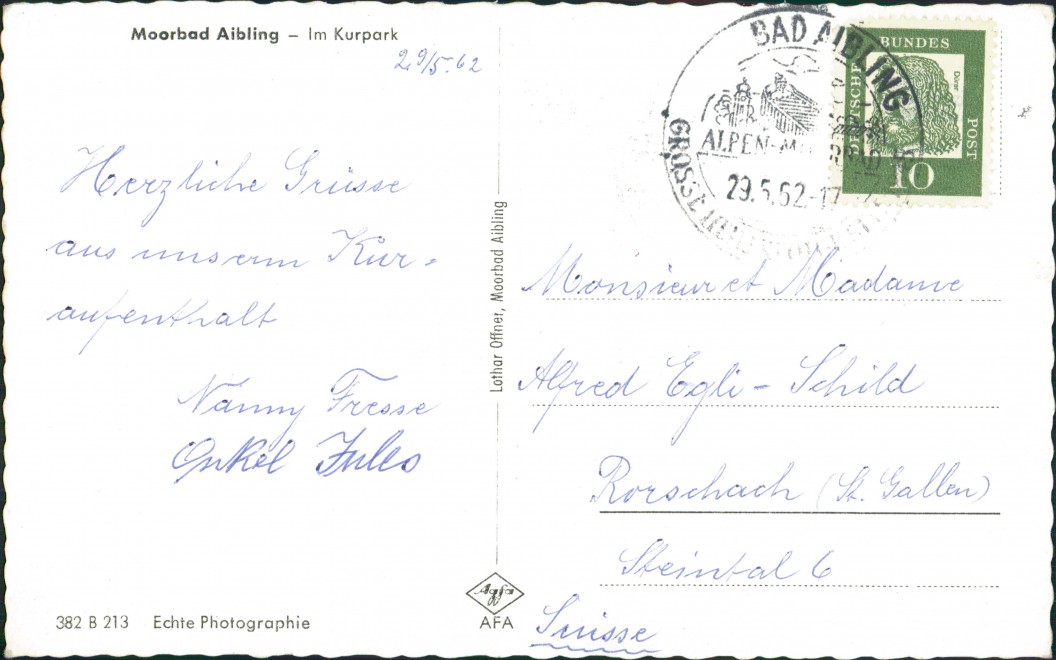 Moorbad Aibling – Im Kurpark
29/5.62
Herzliche Grüsse
aus unserm Kur-
aufenthalt
Nanny Fresse
Onkel Jules
382 B 213 Echte Photographie
Lothar Offner, Moorbad Aibling
Agfa
AFA
BAD AIBLING
ALPEN-M
29.5.62-17
GROSSE
DEUTSCHE BUNDES
POST
Dürer
10
Monsieur et Madame
Alfred Egli - Schild
Rorschach (St. Gallen)
Steintal 6
Suisse